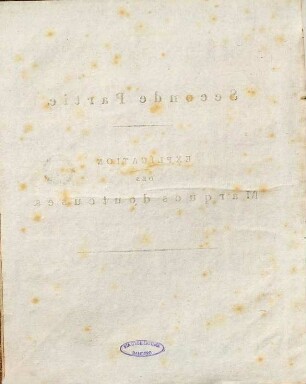 Seconde Partie
EXPLICATION
DES
Marques douteuses